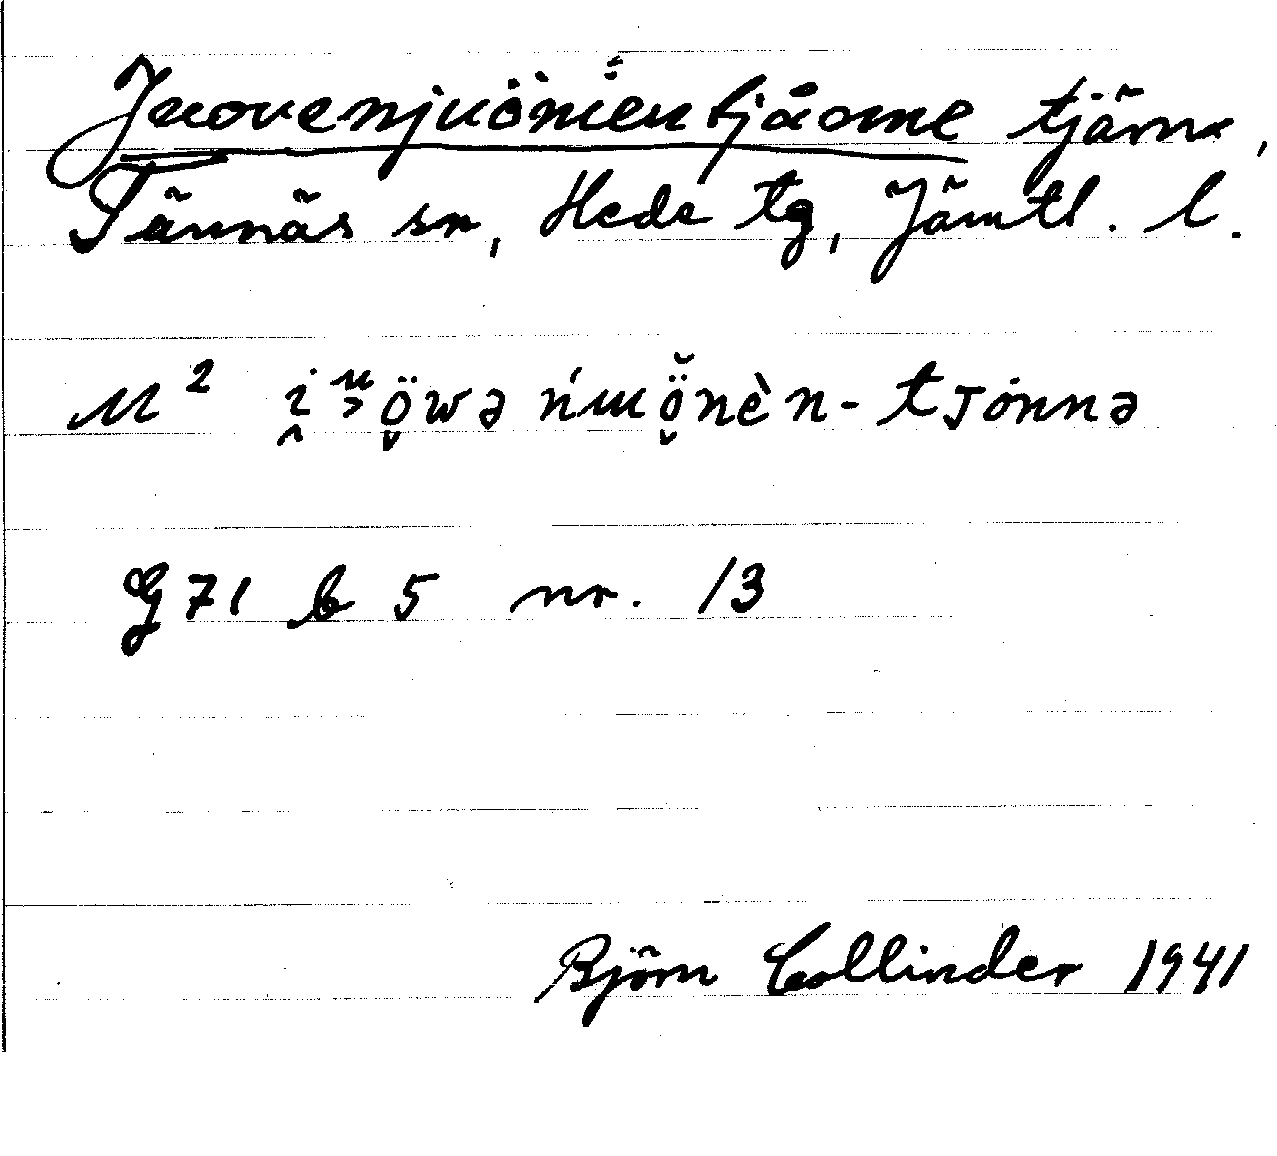 Juovenjuönien tjåome tjärn,
Tännäs sn, Hede tg, Jämtl. l.
M² i̯ ᵘö̬wə ńuö̬̆nèn-tjȯnnə
G 71 b 5 nr. 13
Björn Collinder 1941